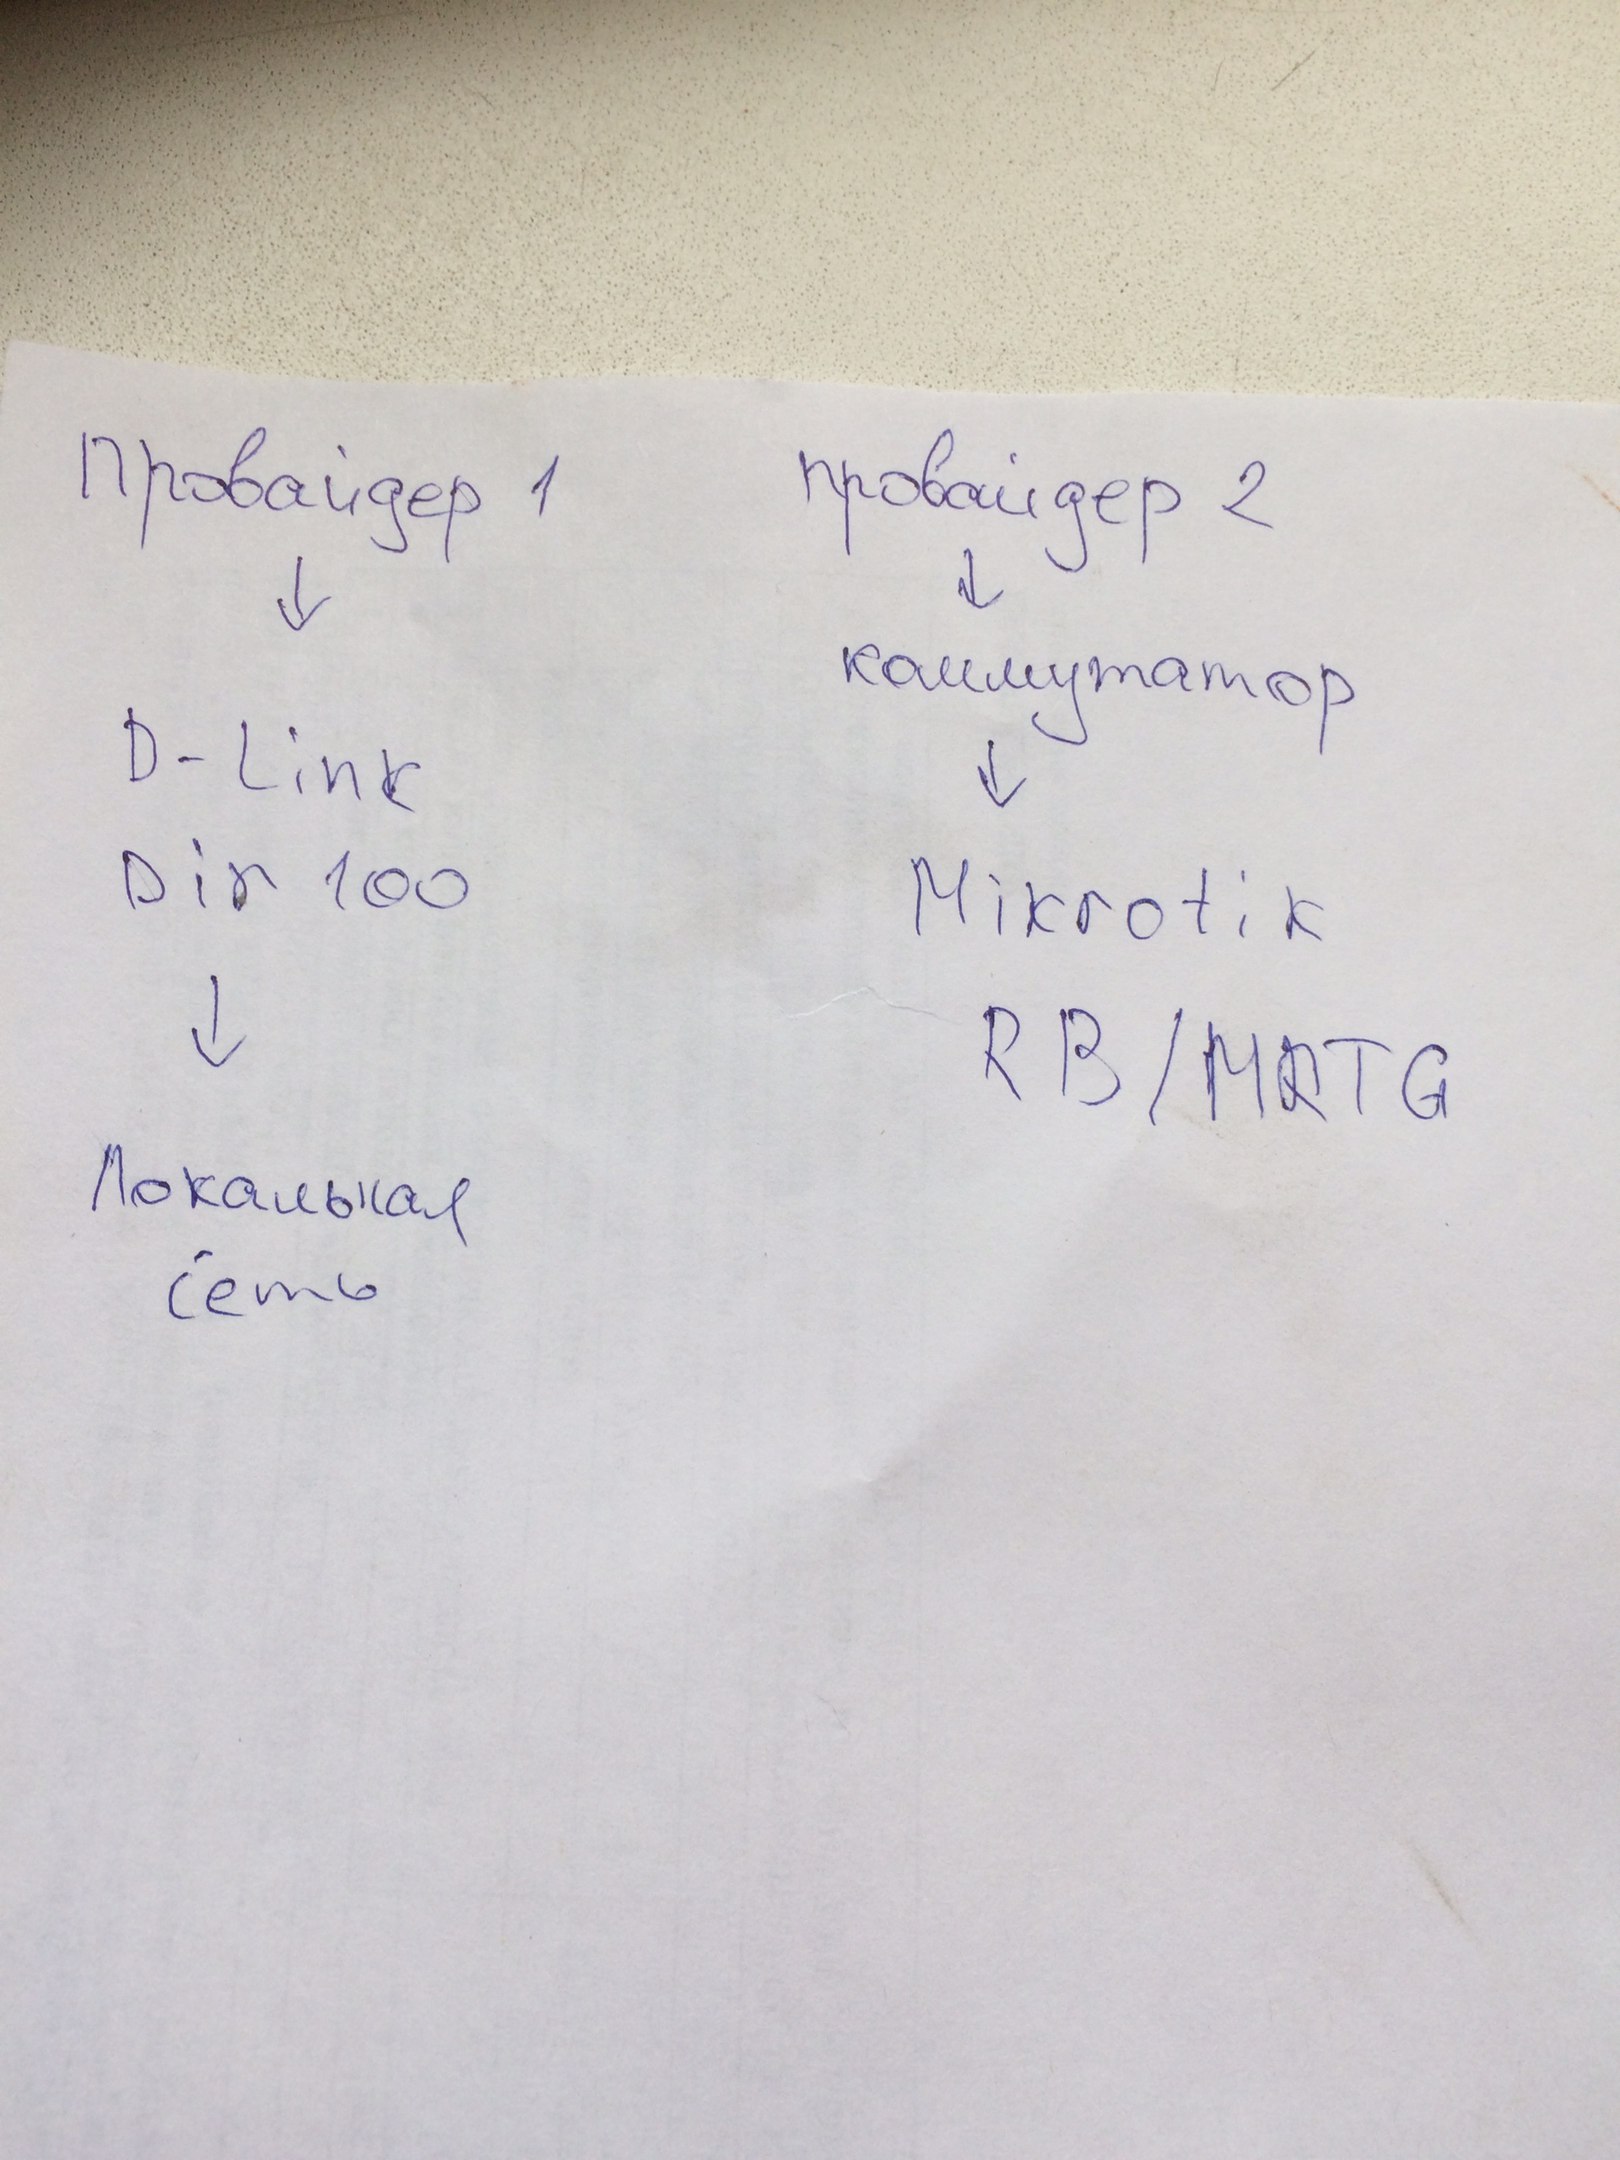 Провайдер 1
↓
D-Link
Dir 100
↓
Локальная
сеть
провайдер 2
↓
коммутатор
↓
Mikrotik
RB/MRTG